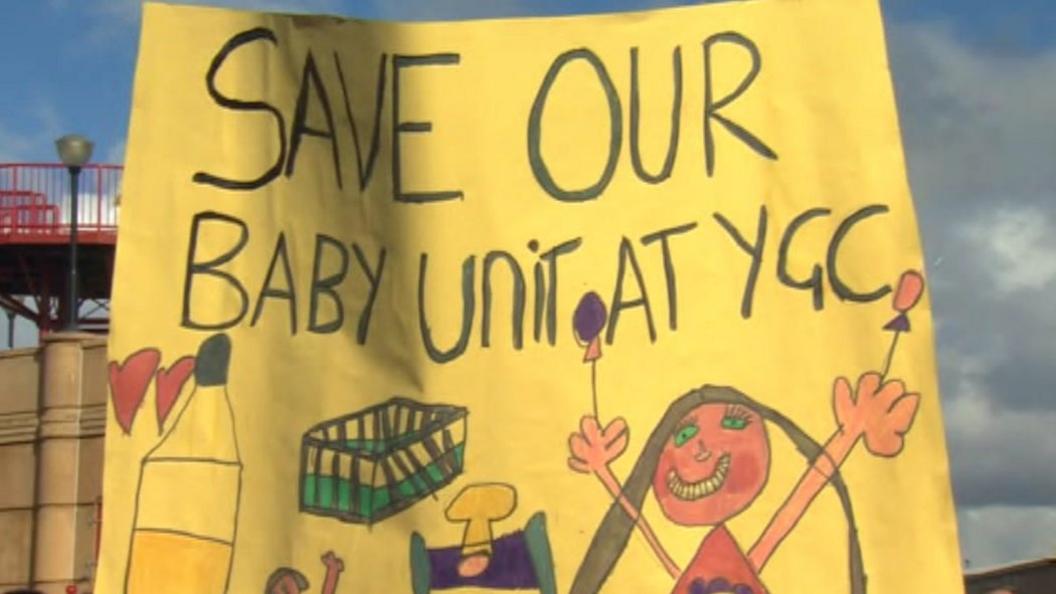 SAVE OUR
BABY UNIT AT YGC